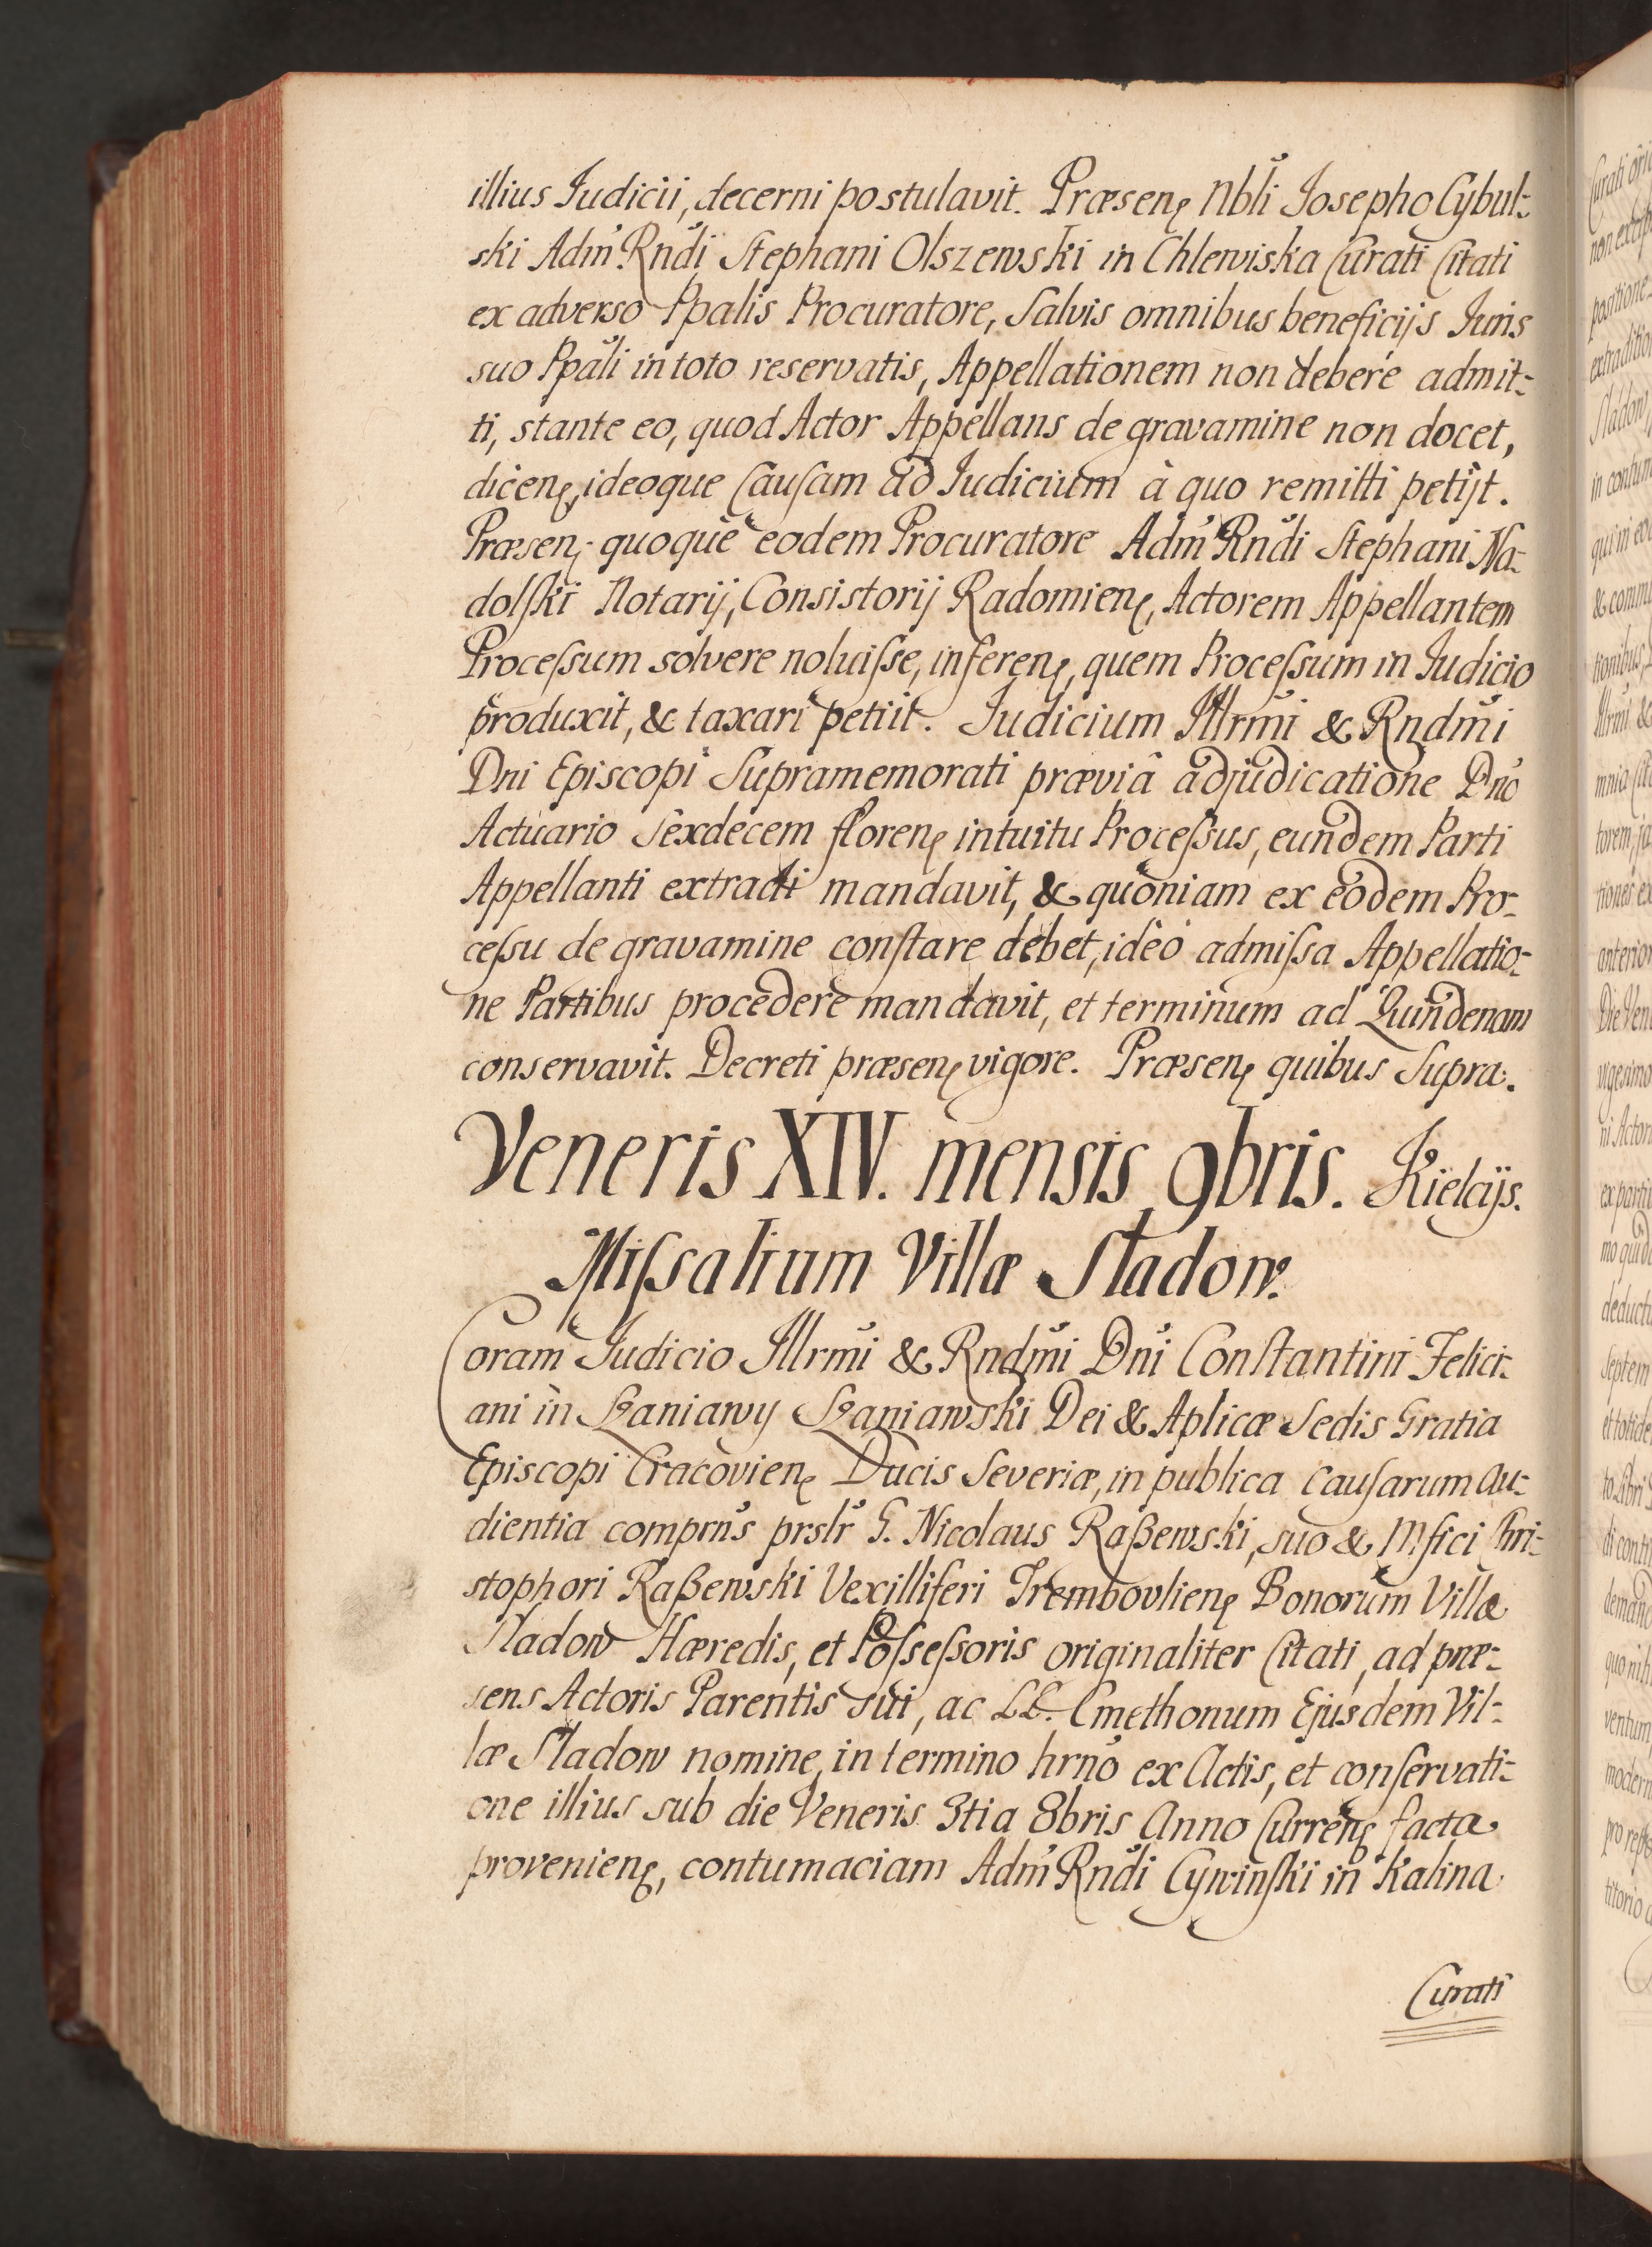 illius Judicii, decerni postulavit. Præsenę Nbli Josepho Cybul-
ski Adm̃ Rndi Stephani Olszewski in Chlewiska Curati Citati
ex adverso Ppalis Procuratore, salvis omnibus beneficijs Juris
suo Ppali in toto reservatis, Appellationem non debere admit-
ti, stante eo, quod Actor Appellans de gravamine non docet,
dicenę, ideoque Cauſam ad Judicium à quo remitti petijt.
Præsenę quoque eodem Procuratore Adm̃ Rndi Stephani Na-
dolſki Notarij, Consistorij Radomienę, Actorem Appellantem
Proceſsum solvere noluiſse, inferenę, quem Proceſsum in Judicio
produxit, & taxari petiit. Judicium Illrmi & Rndmi
Dni Episcopi Supramemorati præviâ adjudicatione Dno
Actuario sexdecem florenę intuitu Proceſsus, eundem Parti
Appellanti extradi mandavit, & quoniam ex eodem Pro-
ceſsu de gravamine conſtare debet, ideo admiſsa Appellatio-
ne Partibus procedere mandavit, et terminum ad Quindenam
conservavit. Decreti præsenę vigore. Præsenę quibus Supra.
Veneris XIV. mensis 9bris. Kielcijs.
Miſsalium Villæ Sladow.
Coram Judicio Illrmi & Rndmi Dni Conſtantini Felici-
ani in Szaniawy Szaniawski Dei & Aplicæ Sedis Gratia
Episcopi Cracovienę Ducis Severiæ, in publica Cauſarum Au-
dientia comprns prslr G. Nicolaus Raßewski, suo & Mfici Chri-
stophori Raßewski Vexilliferi Trembovlienę Bonorum Villæ
Sladow Hæredis, et Poſseſsoris originaliter Citati, ad præ-
sens Actoris Parentis sui, ac LL. Cmethonum Ejusdem Vil-
læ Sladow nomine, in termino hrno ex Actis, et conſervati-
one illius sub die Veneris 3tia 8bris Anno Currenę facta
provenienę, contumaciam Adm̃ Rndi Cywinſki in Kalina
Curati